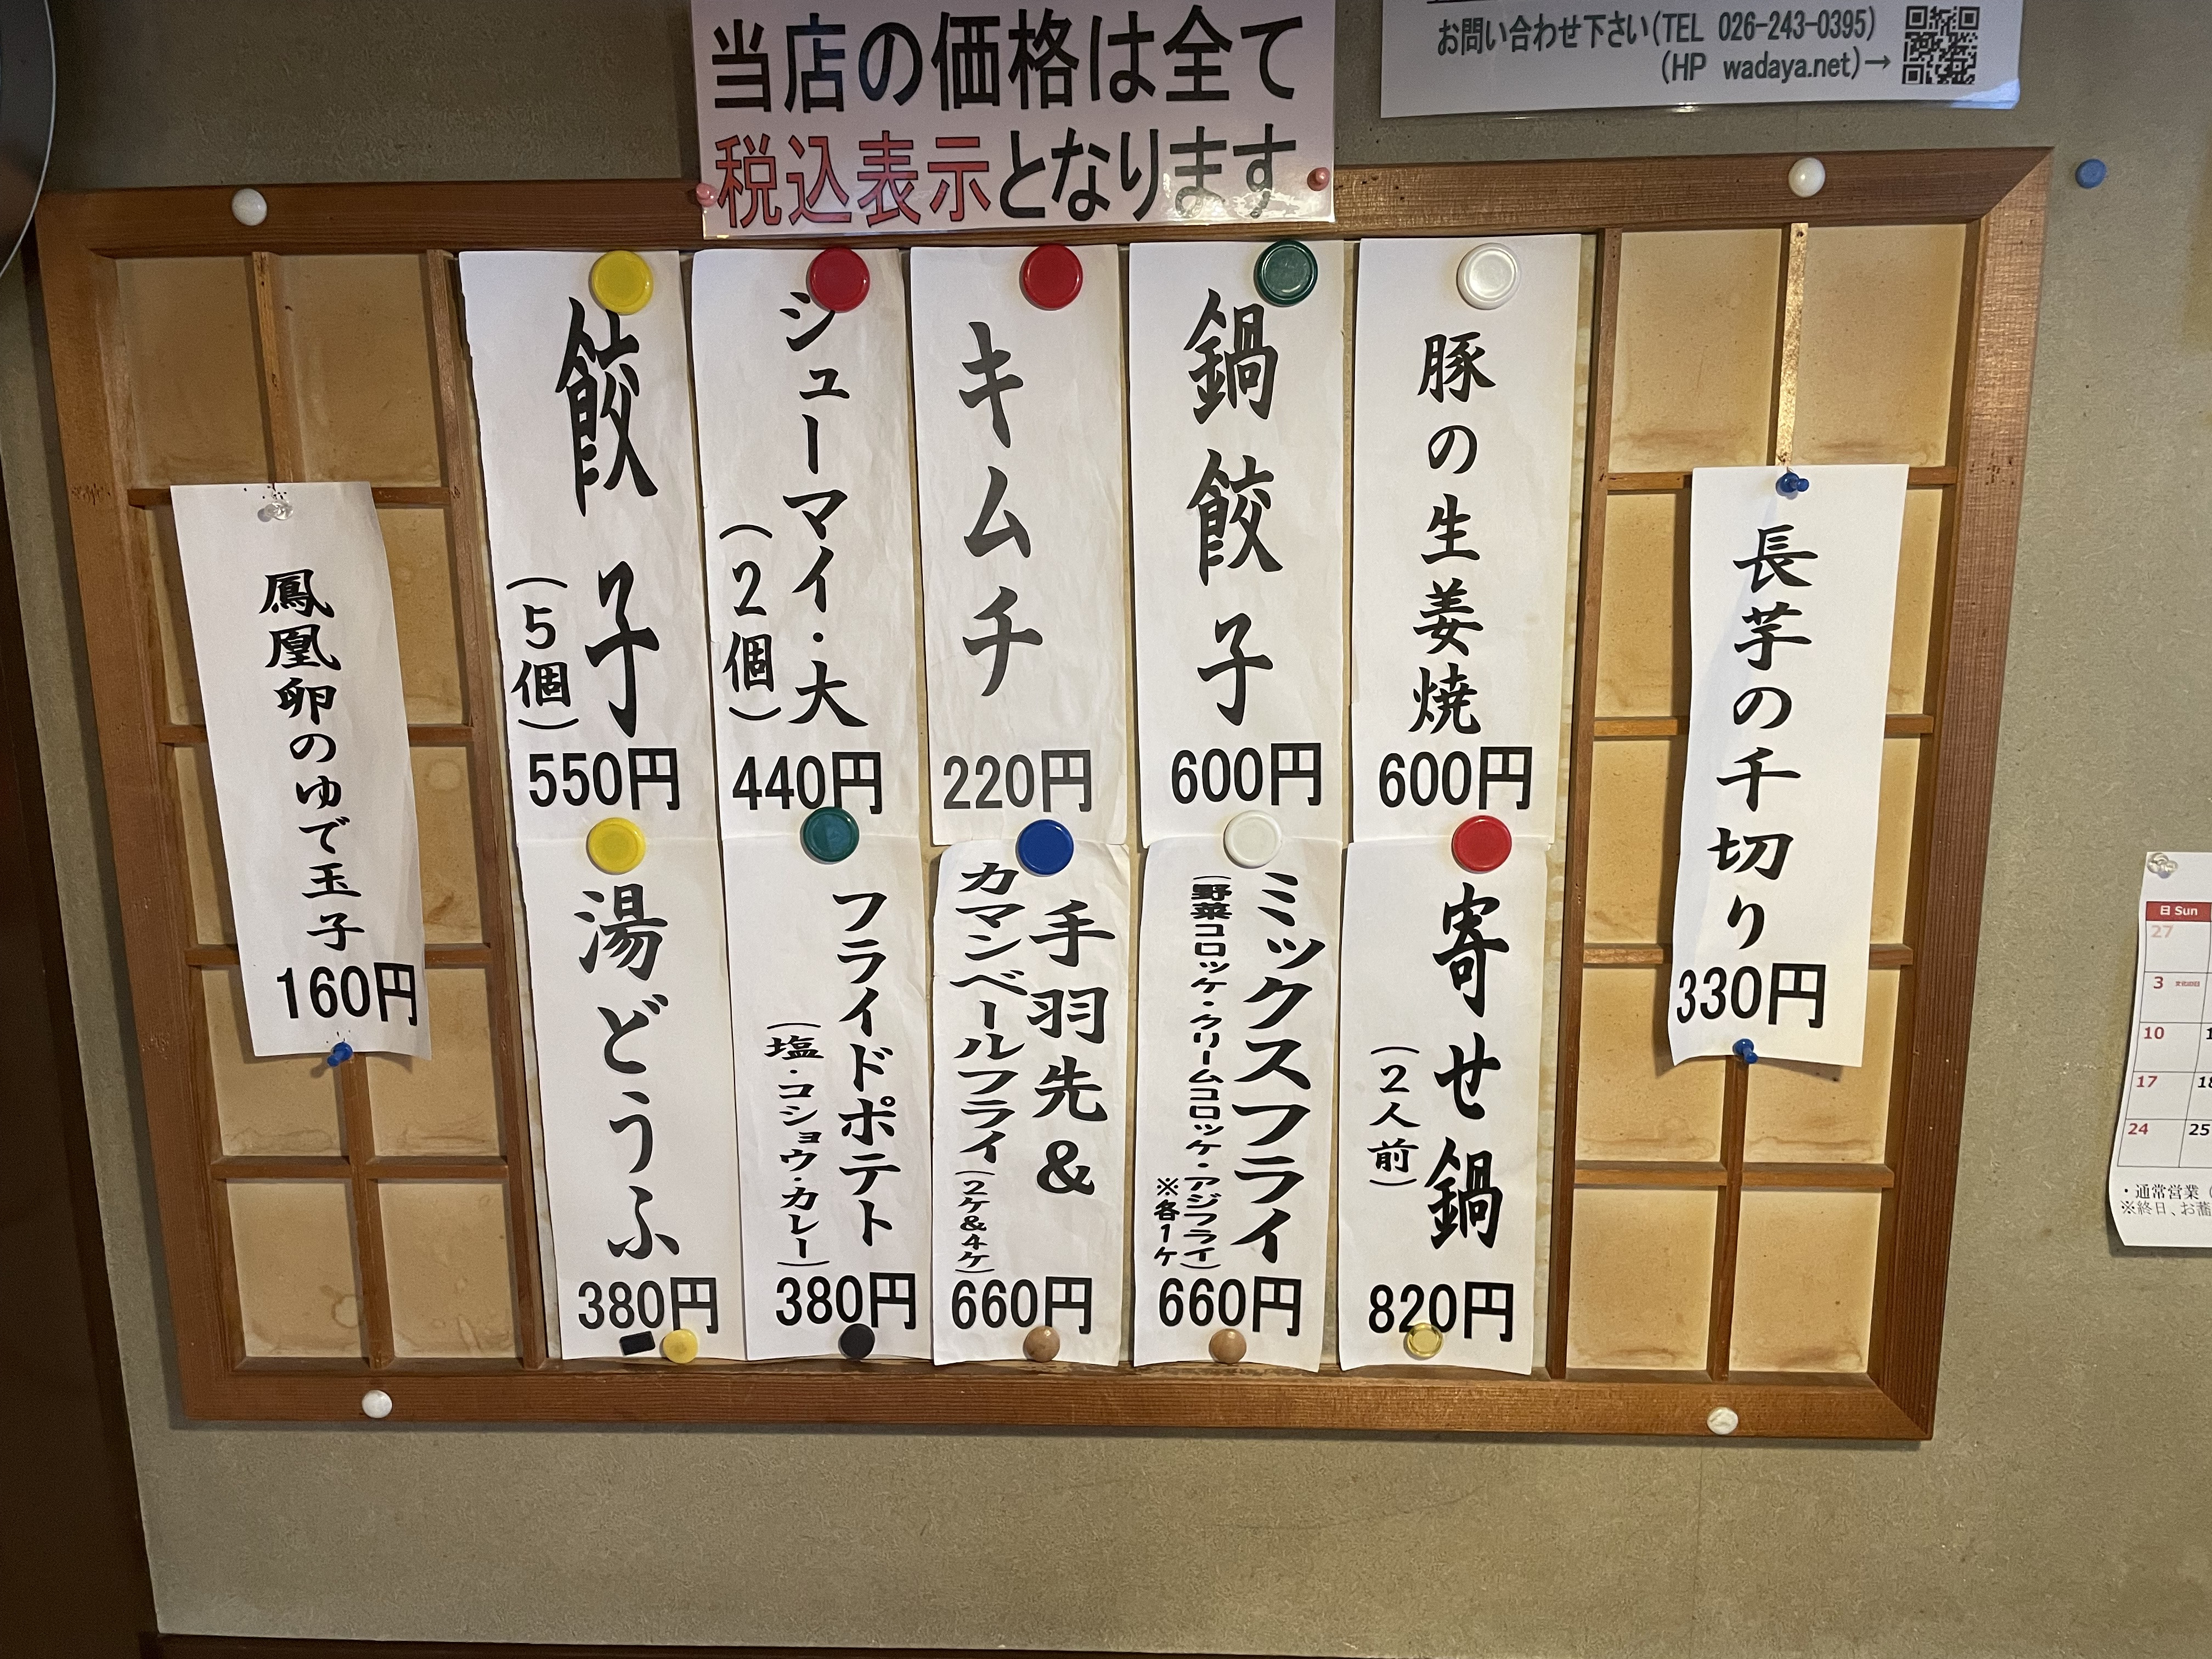 当店の価格は全て
税込表示となります
お問い合わせ下さい(TEL 026-243-0395)
(HP wadaya.net)→
長芋の千切り
330円
豚の生姜焼
600円
鍋餃子
600円
キムチ
220円
シューマイ・大
(2個)
440円
餃子
(5個)
550円
寄せ鍋
(2人前)
820円
ミックスフライ
(野菜コロッケ・クリームコロッケ・アジフライ)
※各1ケ
660円
手羽先&
カマンベールフライ(2ケ&4ケ)
660円
フライドポテト
(塩・コショウ・カレー)
380円
湯どうふ
380円
鳳凰卵のゆで玉子
160円
日 Sun
27
3
10
17
24 25
・通常営業
※終日、お蕎